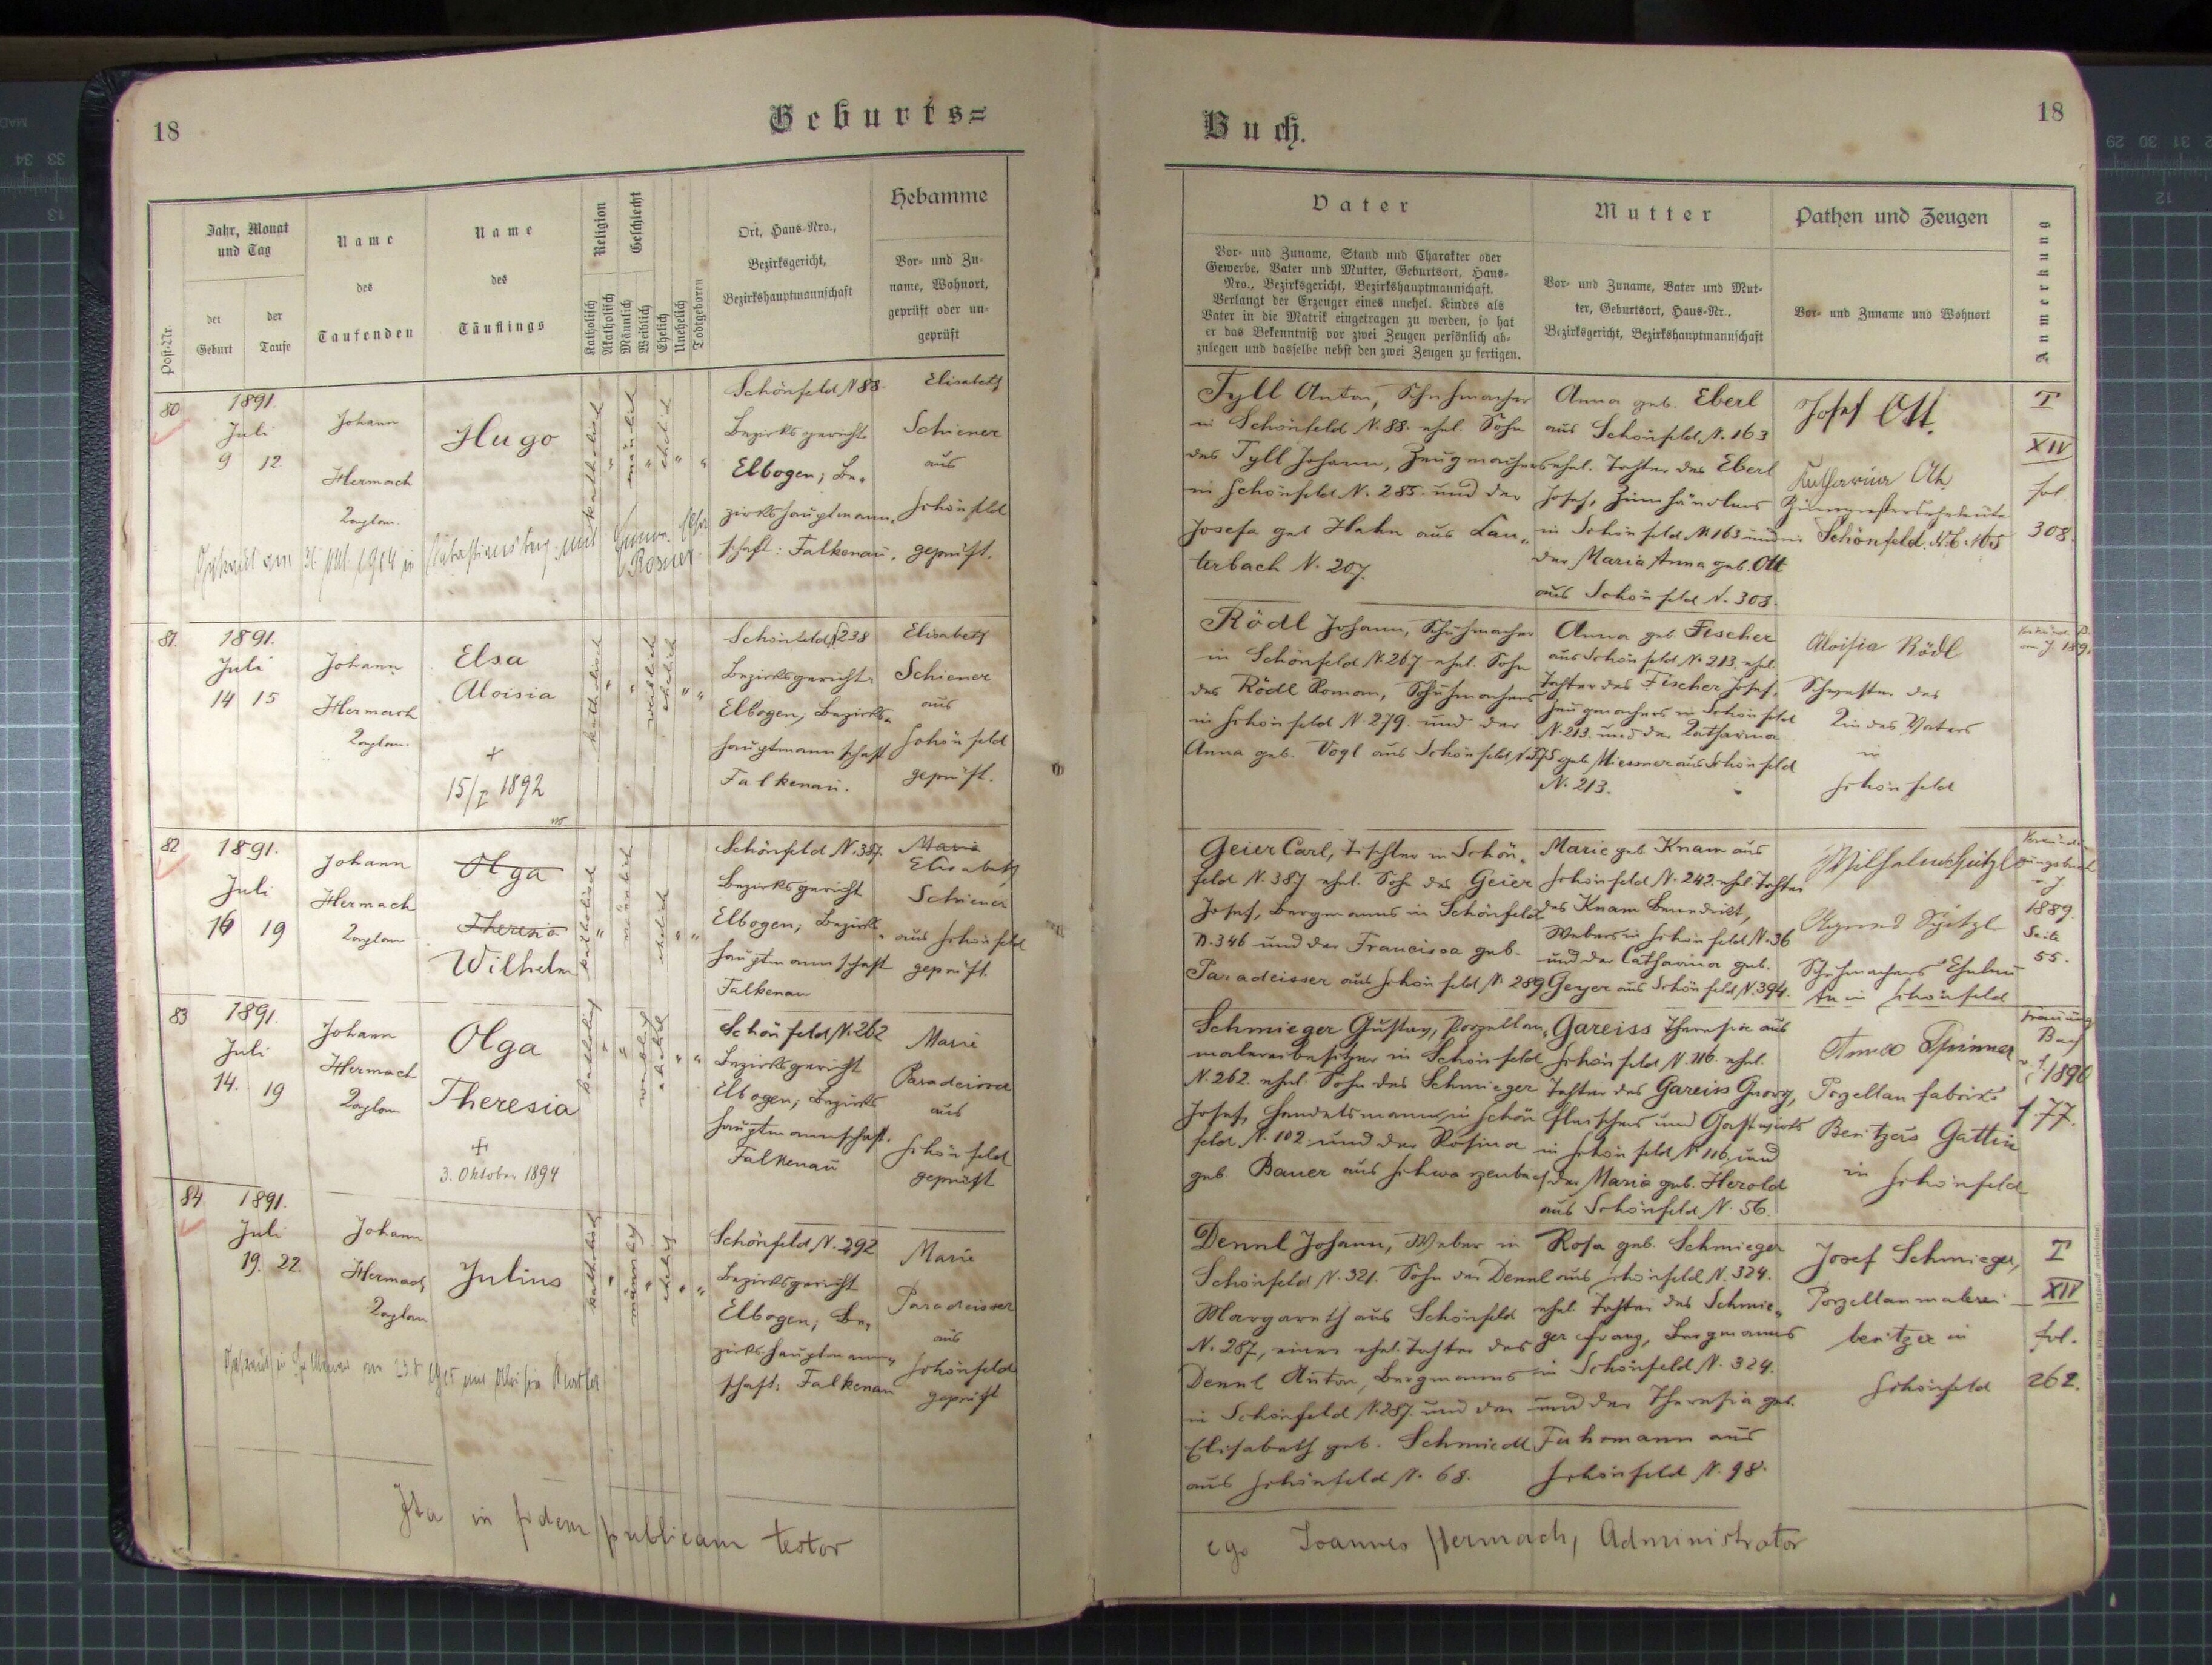 18
Geburts=
Post-Nr.
Jahr, Monat
und Tag
der
Geburt
der
Taufe
Name
des
Taufenden
Name
des
Täuflings
Religion
Katholisch
Akatholisch
Geschlecht
Männlich
Weiblich
Ehelich
Unehelich
Todtgeboren
Ort, Haus-Nro.,
Bezirksgericht,
Bezirkshauptmannschaft
Hebamme
Vor- und Zu-
name, Wohnort,
geprüft oder un-
geprüft
80
1891.
Juli
9 12.
Johann
Hermach
Hugo
katholisch
männlich
ehelich
Schönfeld N 88.
Bezirksgericht
Elbogen; Be-
zirkshauptmann-
schaft: Falkenau.
Elisabeth
Schiener
aus
Schönfeld
geprüft.
Rosner
81.
1891.
Juli
14 15
Johann
Hermach
Elsa
Aloisia
+
15/I 1892
katholisch
weiblich
ehelich
Schönfeld N 238
Bezirksgericht
Elbogen; Bezirks-
hauptmannschaft
Falkenau.
Elisabeth
Schiener
aus
Schönfeld
geprüft.
82
1891.
Juli
16 19
Johann
Hermach
Olga
Theresia
Wilhelm
katholisch
männlich
ehelich
Schönfeld N. 387.
Bezirksgericht
Elbogen; Bezirks-
hauptmannschaft
Falkenau
Maria
Elisabeth
Schiener
aus Schönfeld
geprüft.
83
1891.
Juli
14. 19
Johann
Hermach
Olga
Theresia
+
3. Oktober 1894
katholisch
weiblich
ehelich
Schönfeld N. 262
Bezirksgericht
Elbogen; Bezirks
hauptmannschaft.
Falkenau
Marie
Paradeisser
aus
Schönfeld
geprüft
84
1891.
Juli
19. 22.
Johann
Hermach
Julius
katholisch
männlich
ehelich
Schönfeld N. 292
Bezirksgericht
Elbogen; Be-
zirkshauptmann-
schaft: Falkenau
Marie
Paradeisser
aus
Schönfeld
geprüft
Ita in fidem publicam testor
18
Buch.
Vater
Vor- und Zuname, Stand und Charakter oder
Gewerbe, Vater und Mutter, Geburtsort, Haus-
Nro., Bezirksgericht, Bezirkshauptmannschaft.
Verlangt der Erzeuger eines unehel. Kindes als
Vater in die Matrik eingetragen zu werden, so hat
er das Bekenntniß vor zwei Zeugen persönlich ab-
zulegen und dasselbe nebst den zwei Zeugen zu fertigen.
Mutter
Vor- und Zuname, Vater und Mut-
ter, Geburtsort, Haus-Nr.,
Bezirksgericht, Bezirkshauptmannschaft
Pathen und Zeugen
Vor- und Zuname und Wohnort
Anmerkung
Tyll Anton, Schuhmacher
in Schönfeld N. 88. ehel. Sohn
des Tyll Johann, Zeugmachers
in Schönfeld N. 285. und der
Josefa geb Hahn aus Lau-
terbach N. 207.
Anna geb. Eberl
aus Schönfeld N. 163
ehel. Tochter des Eberl
Josef, Zinnhändlers
in Schönfeld N 163 und
der Maria Anna geb. Ott
aus Schönfeld N. 303.
Josef Ott.
Katharina Ott
in Schönfeld
I
XIV
fol.
308.
Rödl Johann, Schuhmacher
in Schönfeld N. 267 ehel. Sohn
des Rödl Roman, Schuhmachers
in Schönfeld N. 279. und der
Anna geb. Vogl aus Schönfeld
Anna geb Fischer
aus Schönfeld N. 213. ehel.
Tochter des Fischer Josef,
Zeugmachers in Schönfeld
N. 213. und der Katharina
geb. Miessner aus Schönfeld
N. 213.
Aloisia Rödl
Schwester des
Kindes Vaters
in
Schönfeld
Geier Carl, Tischler in Schön-
feld N. 387 ehel. Sohn des Geier
Josef, Bergmanns in Schönfeld
N. 346 und der Francisca geb.
Paradeisser aus Schönfeld N 289
Marie geb Knam aus
Schönfeld N. 242. ehel. Tochter
des Knam Benedickt,
Webers in Schönfeld N. 36
und der Catharina geb.
Geyer aus Schönfeld N. 394.
Wilhelm Schitzl
Agnes Schitzl
Schuhmachers Eheleu-
te in Schönfeld
1889.
Seite
55.
Schmieger Gustav, Porzellan-
malereibesitzer in Schönfeld
N. 262. ehel. Sohn des Schmieger
Josef, Handelsmann in Schön
feld N. 102. und der Rosina
geb. Bauer aus Schwarzenbach
Gareiss Theresia aus
Schönfeld N. 116. ehel.
Tochter des Gareiss Georg,
Fleischers und Gastwirts
in Schönfeld N 116. und
der Maria geb. Herold
aus Schönfeld N. 56.
Spinner
Porzellanfabriks
Besitzers Gattin
in Schönfeld
Trauungs
Buch
v. J. 1890
f. 77.
Dennl Johann, Weber in
Schönfeld N. 321. Sohn der Dennl
Margareth aus Schönfeld
N. 287, einer ehel. Tochter des
Dennl Anton, Bergmanns
in Schönfeld N. 287. und der
Elisabeth geb. Schmiedl
aus Schönfeld N. 68.
Rosa geb. Schmieger
aus Schönfeld N. 324.
ehel. Tochter des Schmie-
ger Franz, Bergmanns
in Schönfeld N. 324.
und der Theresia geb.
Fuhrmann aus
Schönfeld N. 98.
Josef Schmieger,
Porzellanmalerei-
besitzer in
Schönfeld
I
XIV
fol.
262.
ego Joannes Hermach, Administrator